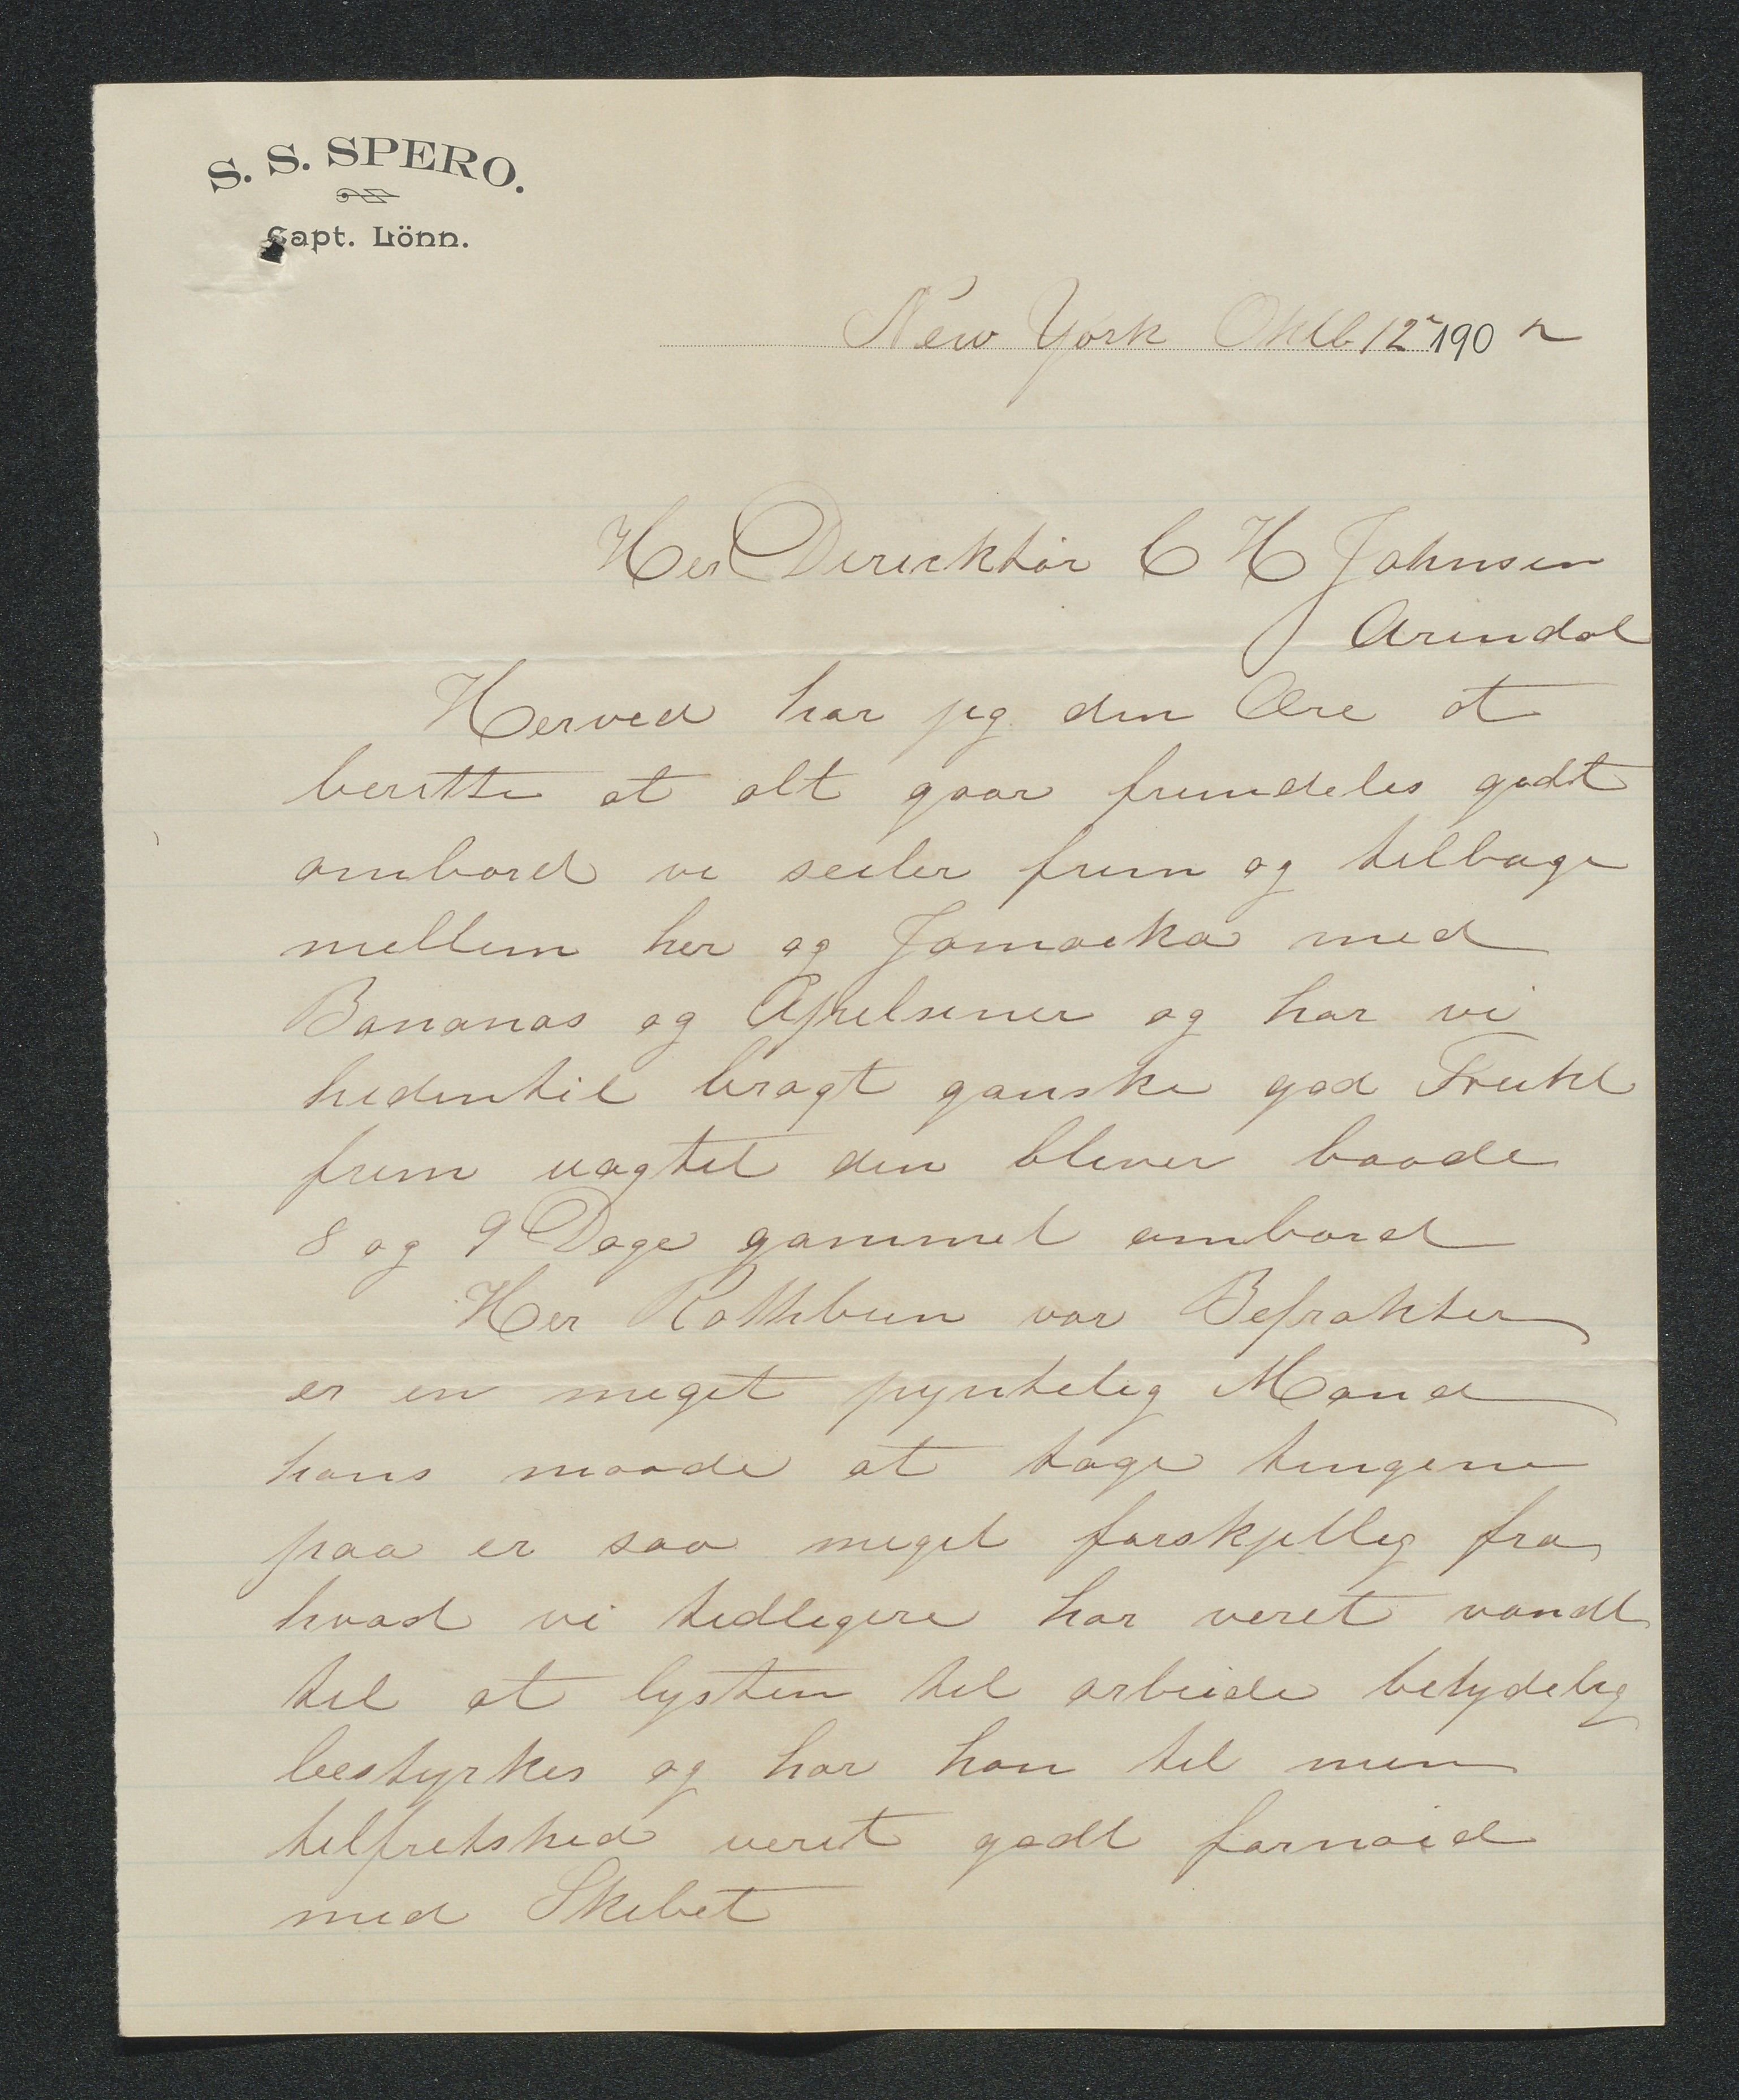 S. S. SPERO.
Capt. Lönn.
New York Oktb 12 190 2
Her Direcktør C H Johnsen
Arendal
Herved har jeg den Ære at
beretter at alt gaar fremdeles godt
ombord vi seiler frem og tilbage
mellem her og Jamaika med
Bananas og Apelsiner og har vi
hidentil bragt ganske god Frukt
frem uagtet den bliver baade
8 og 9 Dage gammel ombord
Her Rathbun vor Befrakter
er en meget pyntelig Mand
hans maade at tage tingene
paa er saa meget forskjellig fra
hvad vi tidligere har veret vandt
til at lysten til arbeide betydelig
bestyrkes og har han til min
tilfretshed veret godt fornøid
med Skibet